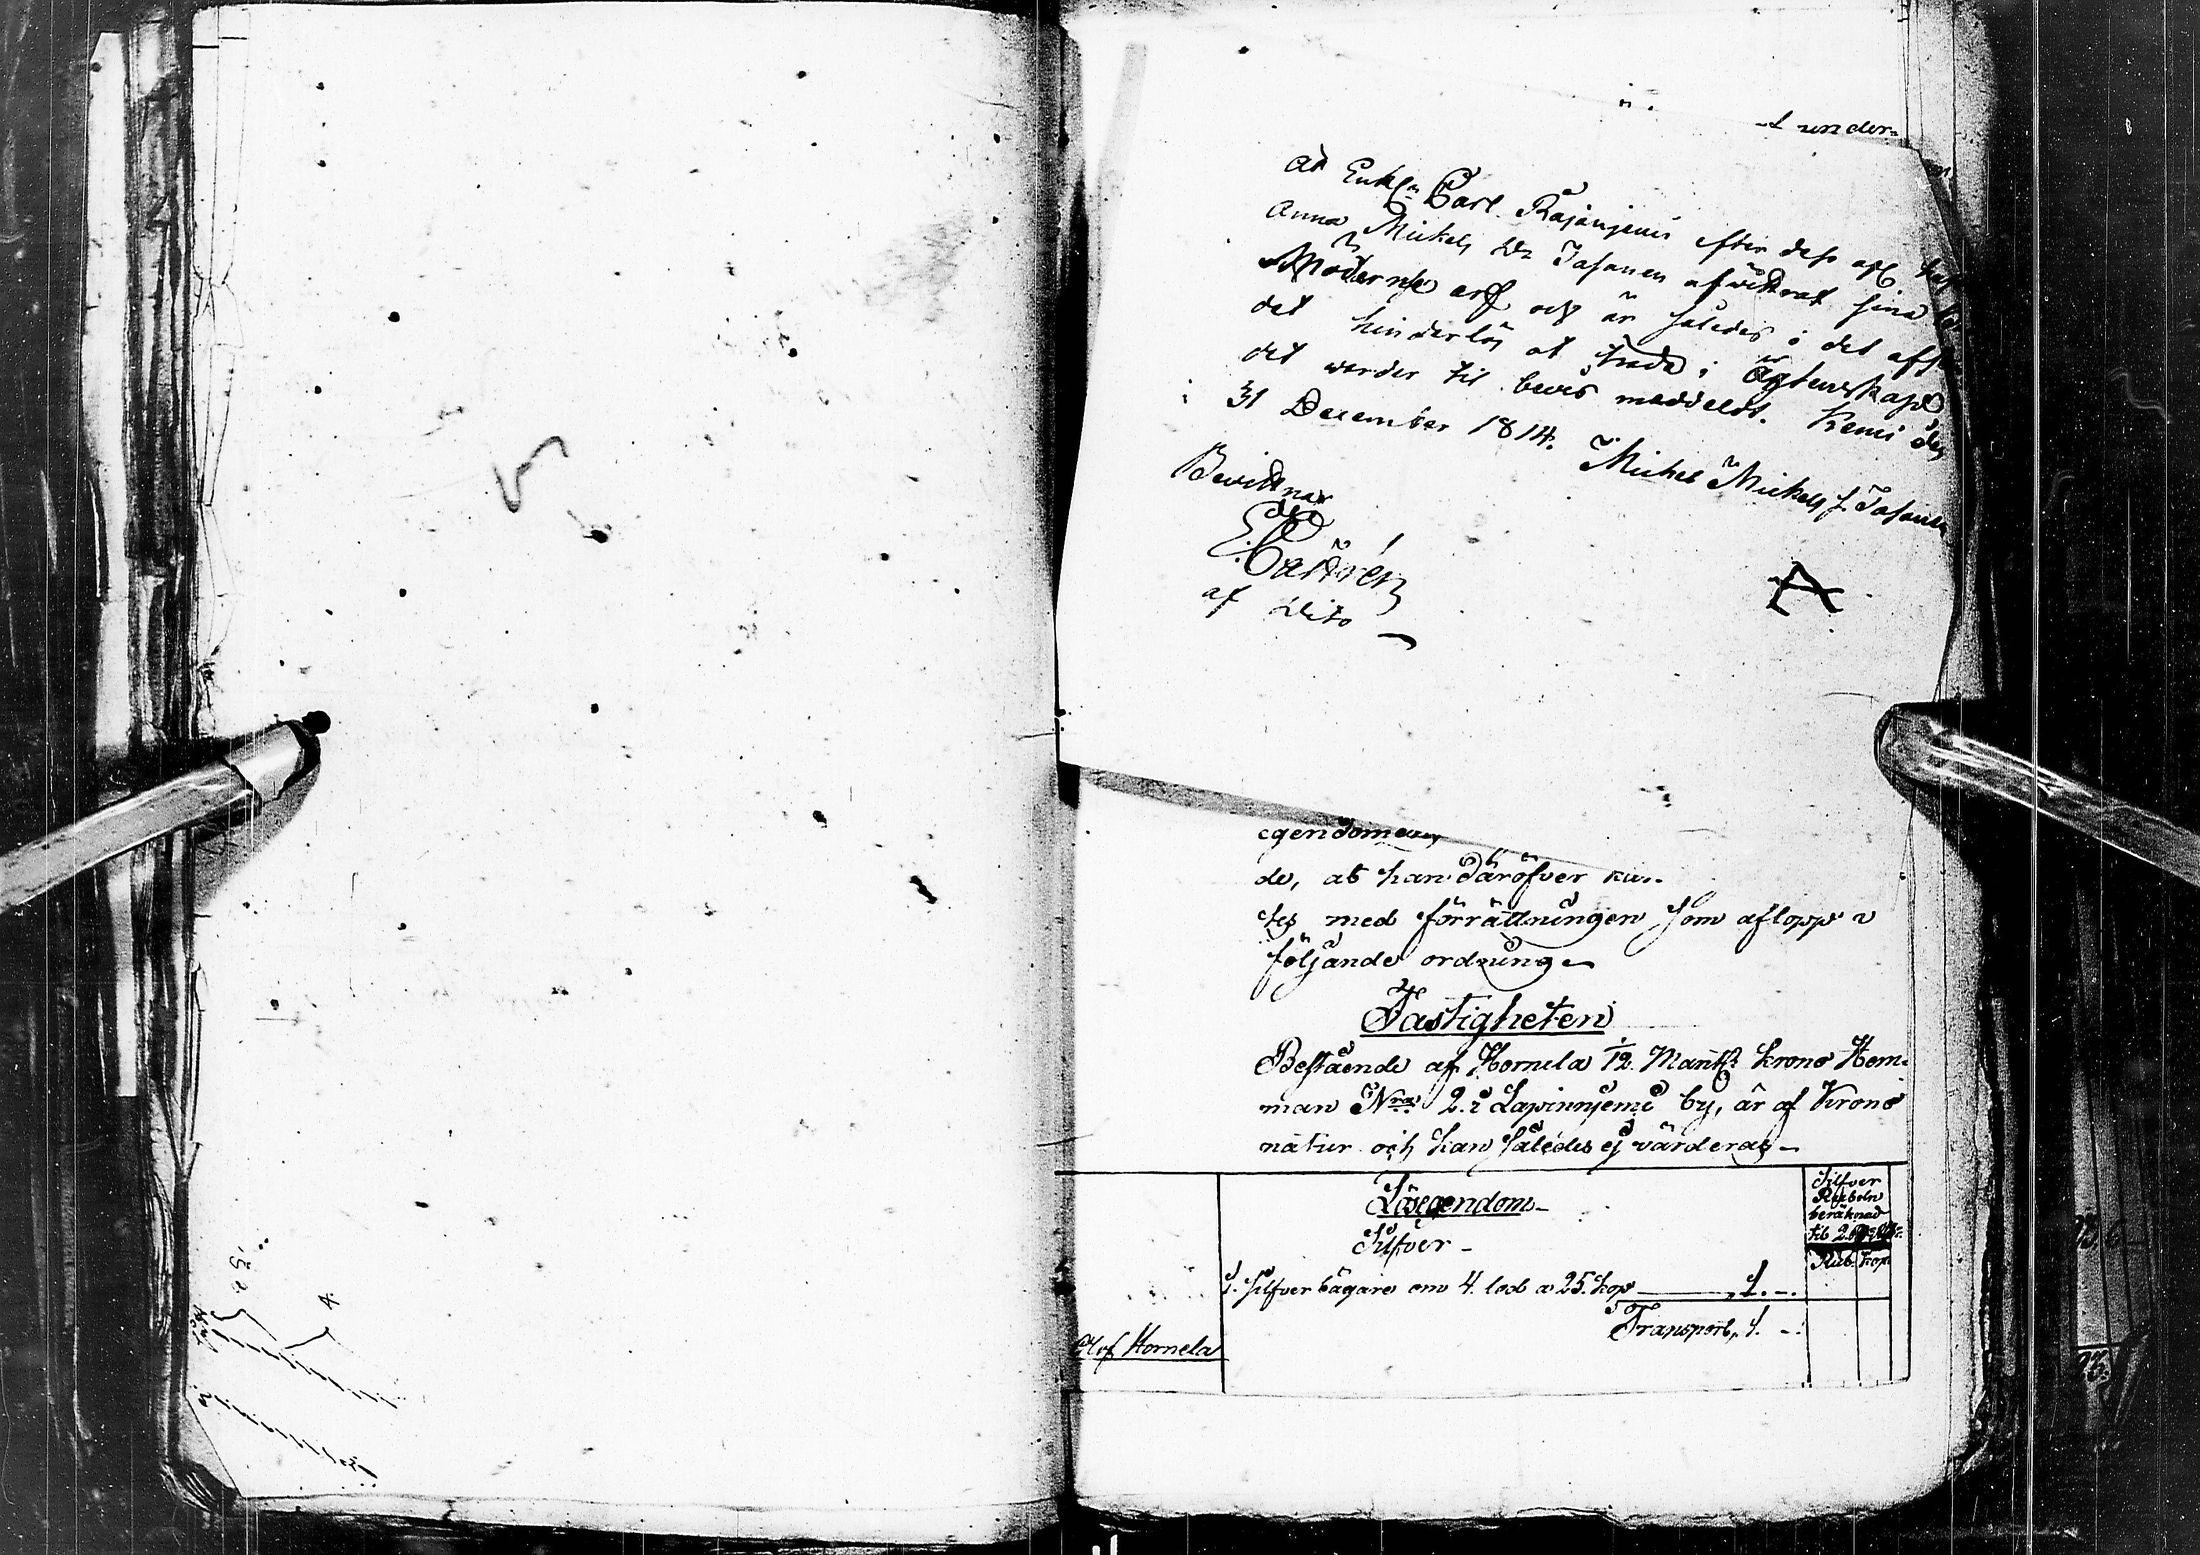 under-
at Enkl:n Carl Rajaniemi efter dess afl.
Anna Mickels Dr Jasanen afwittrat sina
Möderne arf och är således i det afse
det hinderlös at träda i Ägtenskap
det warder til bevis meddelt. Kemi den
31 December 1814.
Mickel Mickels s. Jasanen
Bevittnar
E. Castrén
af Dito
A
egendomen
de, at han däröfver kun-
tes med förrättningen som aflopp i
följande ordning
Fastigheten
Bestående af Hornela 1/12 Mantls Krono Hem-
man Nro 2. i Lapinniemi by, är af Krono
natur och kan således ej värderas
Lösegendom
Silfver
Silfver
Rubeln
beräknad
til 2.
Rub. Kop.
1. Silfver bägare om 4. lod a 25. Kop 1. -.
Transport, 1. -.
Olof Hornela